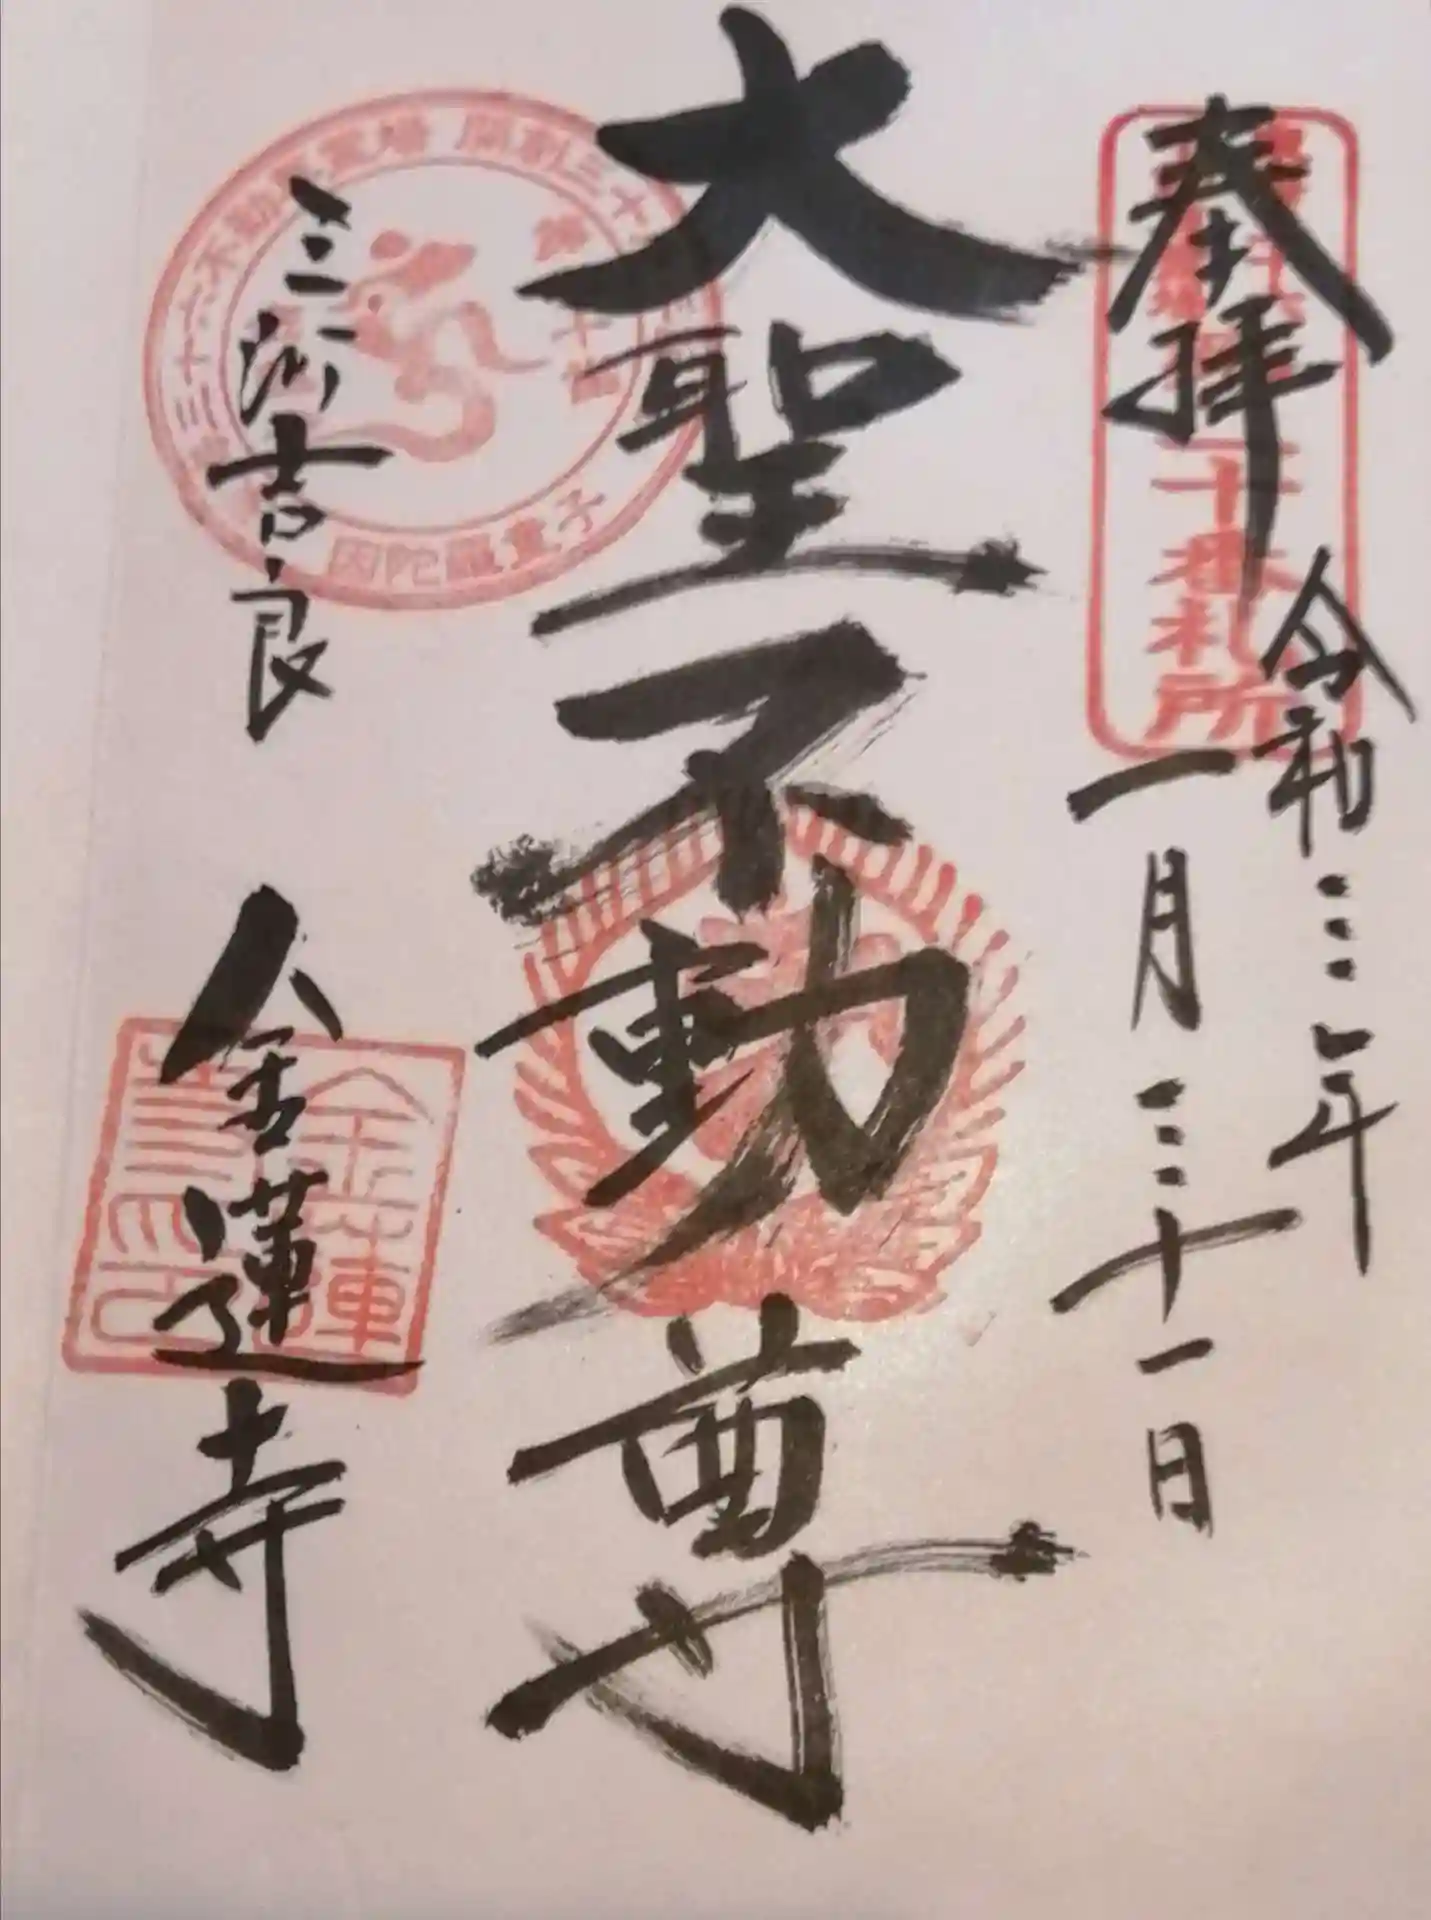 奉拝
令和三年
一月三十一日
大聖不動尊
三河吉良
金蓮寺
十番札所
三十六不動尊霊場
開創三十
因陀羅童子
金蓮